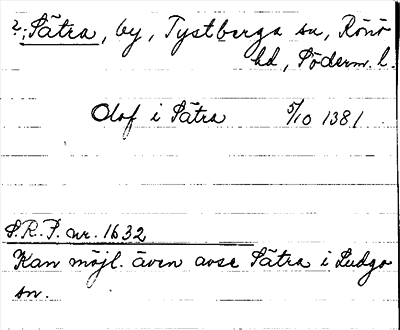 2; Sätra, by, Tystberga sn, Rönö
hd, Söderm. l.
Olof i Sätra 5/10 1381
S.R.P. nr. 1632
Kan möjl. även avse Sätra i Ludgo
sn.